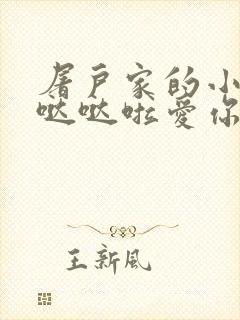 屠户家的小
哒哒啦爱你
王新风